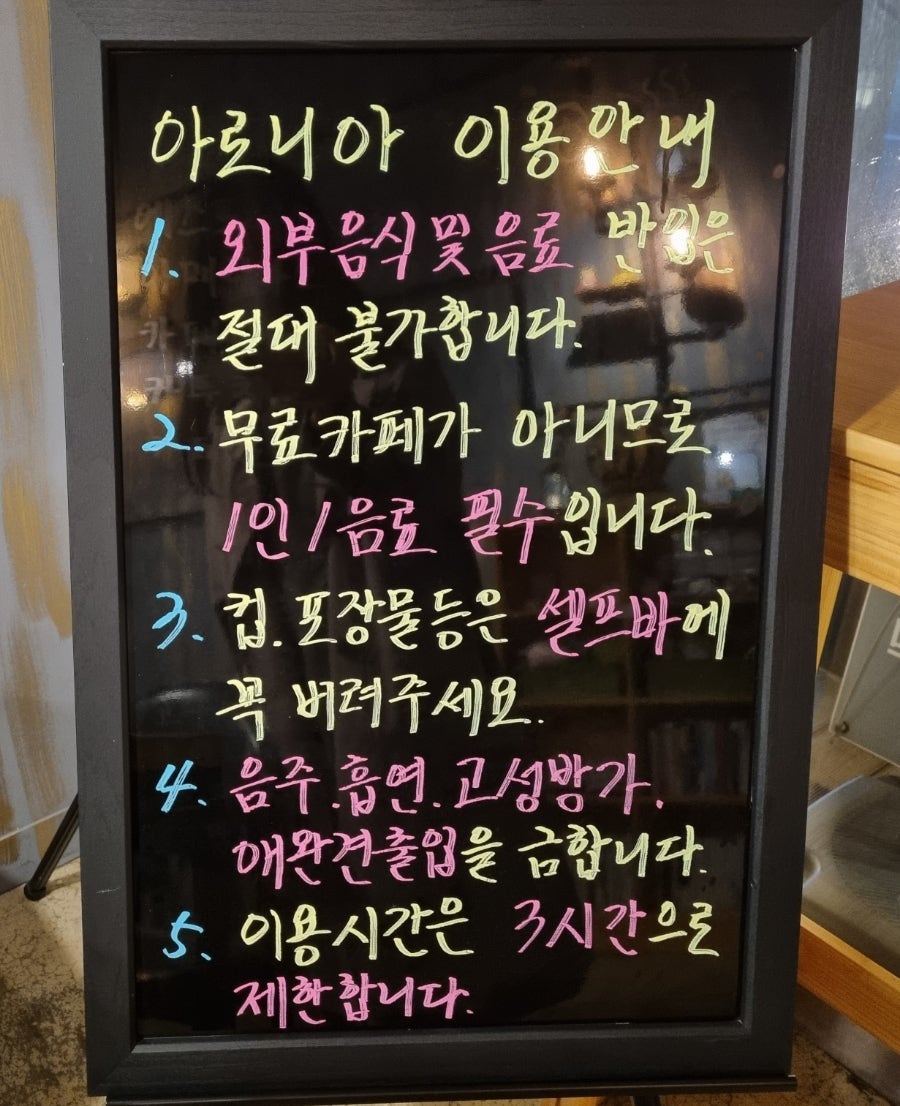 아로니아 이용안내
1. 외부음식 및 음료 반입은
절대 불가합니다.
2. 무료카페가 아니므로
1인 1음료 필수입니다.
3. 컵.포장물등은 셀프바에
꼭 버려주세요.
4. 음주.흡연.고성방가.
애완견출입을 금합니다.
5. 이용시간은 3시간으로
제한합니다.